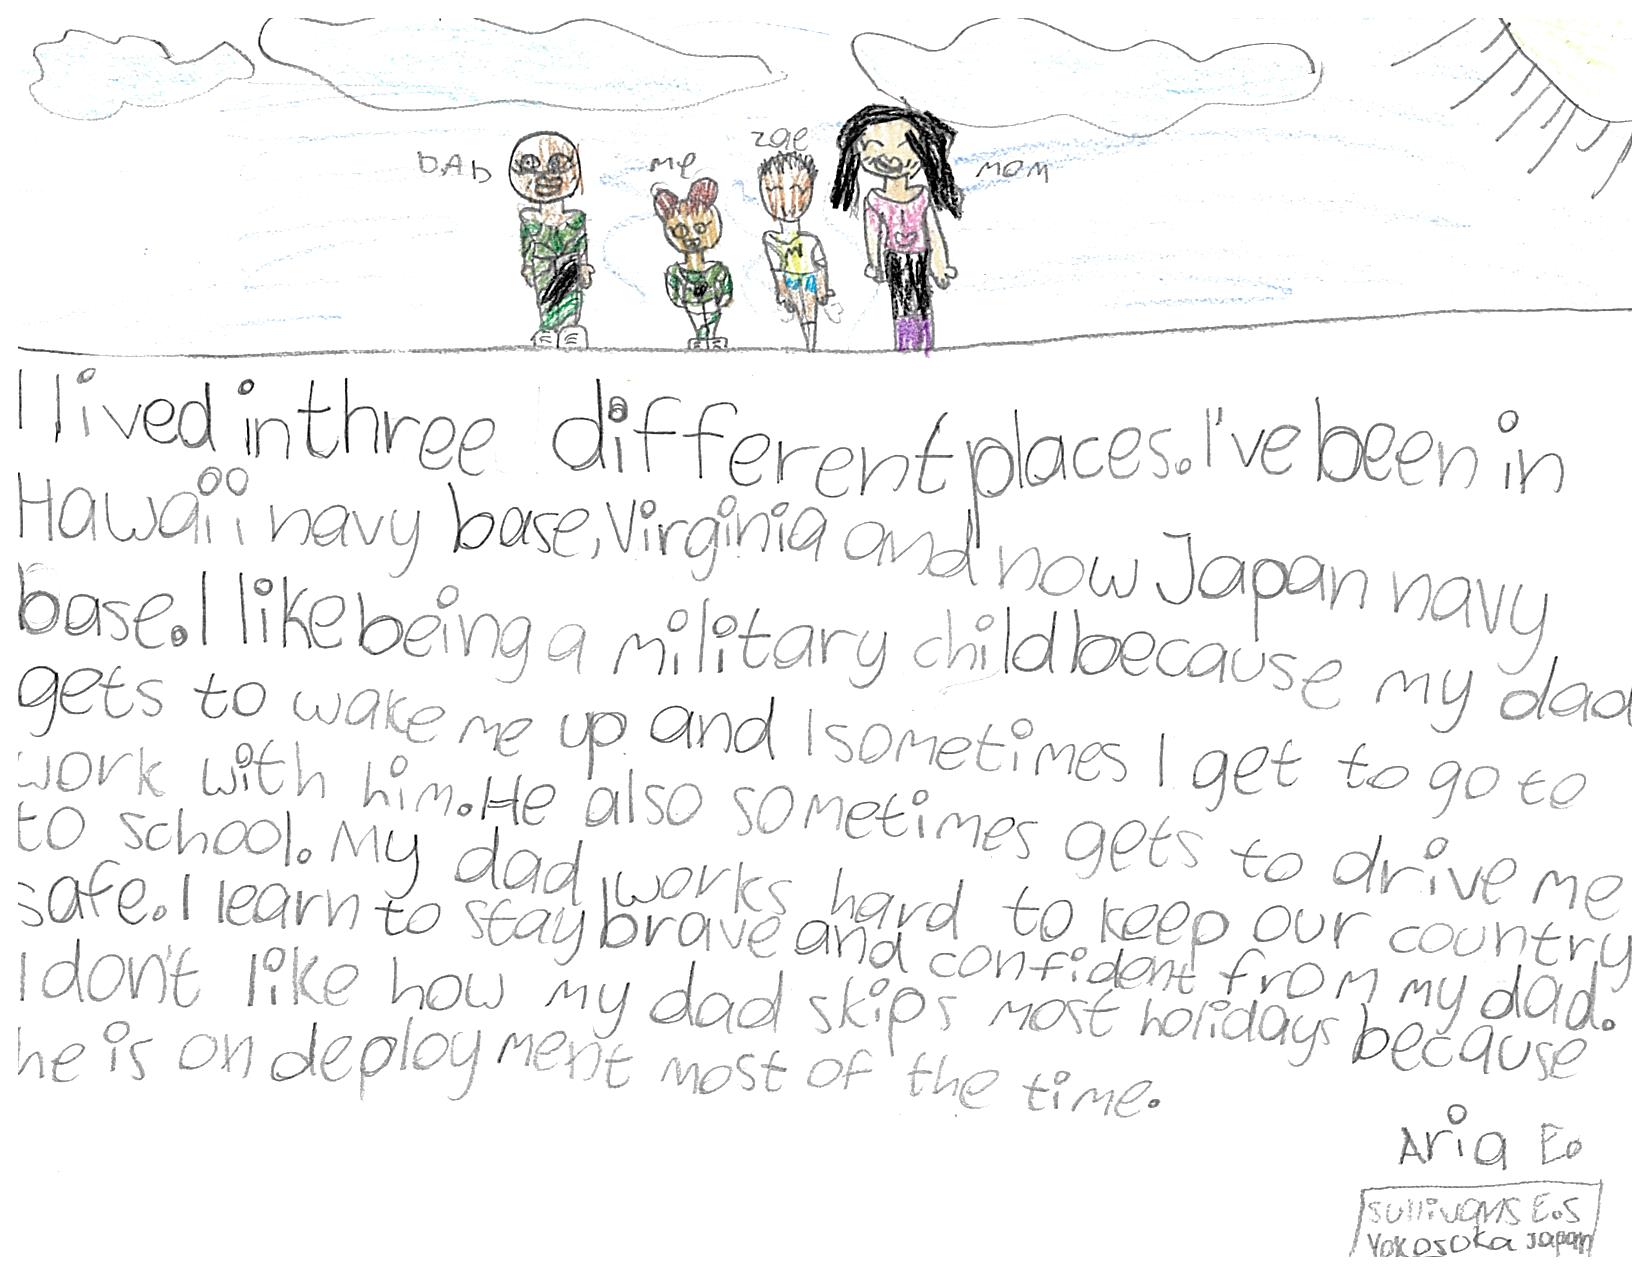 bAb
me
zoe
mom
I lived in three different places. I've been in
Hawaii navy base, Virginia and now Japan navy
base. I like being a military child because my dad
gets to wake me up and I sometimes I get to go to
work with him. He also sometimes gets to drive me
to school. My dad works hard to keep our country
safe. I learn to stay brave and confident from my dad.
I don't like how my dad skips most holidays because
he is on deployment most of the time.
Aria E.
Sullivans E.S
Yokosuka Japan